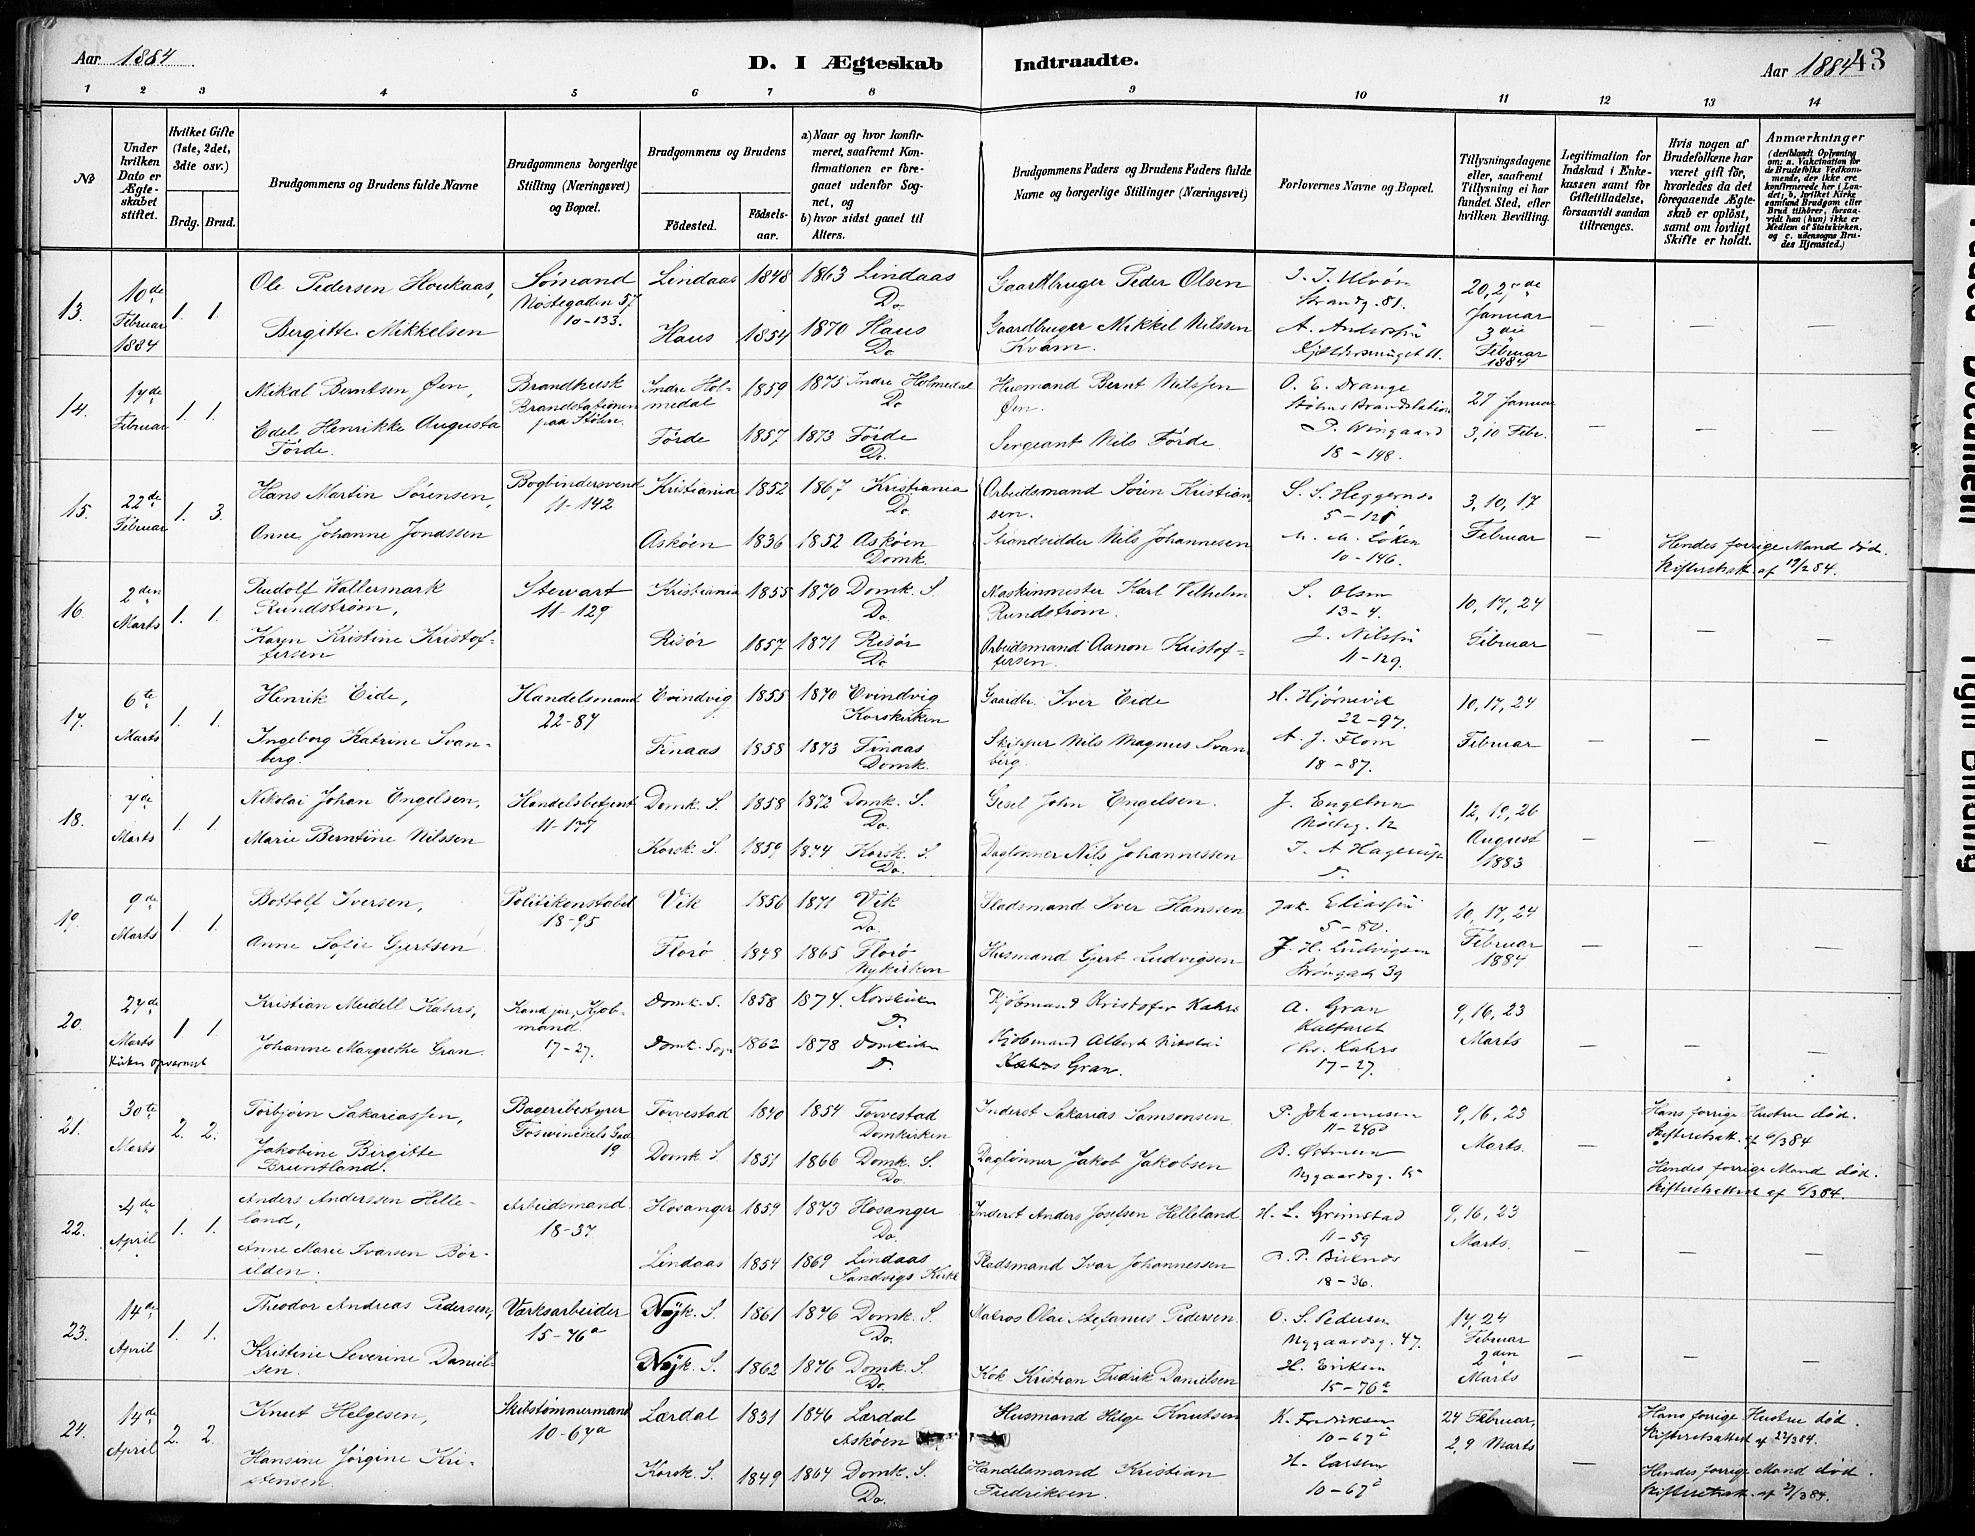 Aar 1884
D. I Ægteskab Indtraadte.
Aar 1884 43
1 2 3 4 5 6 7 8 9 10 11 12 13 14
№
Under hvilken Dato er Ægteskabet stiftet.
Hvilket Gifte (1ste, 2det, 3die osv.)
Brdg. Brud.
Brudgommens og Brudens fulde Navne
Brudgommens borgerlige Stilling (Næringsvei) og Bopæl.
Brudgommens og Brudens
Fødested.
Fødselsaar.
a) Naar og hvor konfirmeret, saafremt Konfirmationen er foregaaet udenfor Sognet, og
b) hvor sidst gaaet til Alters.
Brudgommens Faders og Brudens Faders fulde Navne og borgerlige Stillinger (Næringsvei)
Forlovernes Navne og Bopæl.
Tillysningsdagene eller, saafremt Tillysning ei har fundet Sted, efter hvilken Bevilling.
Legitimation for Indskud i Enkekassen samt for Giftetilladelse, forsaavidt saadan tiltrænges.
Hvis nogen af Brudefolkene har været gift før, hvorledes da det foregaaende Ægteskab er opløst, samt om lovligt Skifte er holdt.
Anmærkninger
(deriblandt Oplysning om: a. Vakcination for de Brudefolks Vedkommende, der ikke ere konfirmerede her i Landet; b. hvilket Kirkesamfund Brudgom eller Brud tilhører, forsaavidt han (hun) ikke er Medlem af Statskirken, og c. udensogns Brudes Hjemsted.)
13. 10de Februar 1884 1. 1.
Ole Pedersen Houkaas, Sømand Nøstegaden 57 10-133. Lindaas 1848 1863 Lindaas Do Gaardbruger Peder Olsen Strandg. 81. 20, 27de Januar 3die Februar 1884
Bergitte Mikkelsen Haus 1854 1870 Haus Do Gaardbruger Mikkel Nilssen Kvam. — — —
14. 17de Februar 1. 1.
Mikal Berntsen Øen, Brandkusk Brandstationen paa Støhre. Indre Holmedal 1859 1875 Indre Holmedal Do. Husmand Bernt Nilssen Øen. O. E. Drange 27 Januar
Edel Henrikke Augusta Förde. Förde 1857 1873 Förde Do. Sergeant Nils Förde. P. Wingaard 18-148. 3, 10 Febr. — — —
15. 22de Februar 1. 3.
Hans Martin Sörensen, Bogbindersvend 11-142 Kristiania 1852 1867 Kristiania Do Arbeidsmand Sören Kristiansen. S. S. Heggernes 3, 10, 17 Februar
Anne Johanne Jonassen Askøen 1836 1852 Askøen Domk. Strandsidder Nils Johannesen 10-146. — Hendes forrige Mand død. Skifteratt. af 19/2 84.
16. 2den Marts 1. 1.
Rudolf Wallermark Rundstrøm, Stewart 11-129 Kristiania 1855 1870 Domk. S. Do. Maskinmester Karl Vilhelm Rundstrøm. S. Olsen 13-4. 10, 17, 24 Februar
Karen Kristine Kristoffersen Risør 1857 1871 Risør Do. Arbeidsmand Aanon Kristoffersen. 11-129. — — —
17. 6te Marts 1. 1.
Henrik Eide, Handelsmand 22-87 Evindvig 1855 1870 Evindvig Korskirken Gaardbr. Iver Eide H. Hjørnevik 22-97. 10, 17, 24 Februar
Ingeborg Katrine Svanberg. Finaas 1858 1873 Finaas Domk. Skipper Nils Magnus Svanberg. A. J. Flom 18-87. — — —
18. 7de Marts 1. 1.
Nikolai Johan Engelsen, Handelsbetjent 11-177 Domk. S. 1858 1872 Domk. S. Do. Gesel John Engelsen. J. Engelsen Nösteg. 12 12, 19, 26 August 1883
Marie Berntine Nilssen Korsk. S. 1859 1874 Korsk. S. Do. Daglønner Nils Johannessen — — —
19. 9de Marts 1. 1.
Bottolf Iversen, Politikonstabel 18-95 Vik 1856 1871 Vik Do. Pladsmand Iver Hanssen 5-80. 10, 17, 24 Februar 1884
Anne Sofie Gjertsen Florø 1848 1865 Florø Nykirken Husmand Gjert Ludvigsen J. H. Ludvigsen 39 — — —
20. 27de Marts 1. 1.
Kristian Meidell Kahrs, Kand. jur., Kjøbmand. 17-27. Domk. S. 1858 1874. Korskirken D. Kjøbmand Kristofer Kahrs A. Gran Kalfaret 9, 16, 23 Marts
Johanne Margrethe Gran. Domk. Sogn 1862 1878 Domkirken D. Kjøbmand Albert Nikolai Gran. Chr. Kahrs 17-27. — — —
21. 30te Marts 2. 2.
Torbjørn Sakariassen, Bageribestyrer 19 Torvestad 1840 1854 Torvestad Domkirken Inderst Sakarias Samsonsen P. Johannesen 9, 16, 23 Marts. Hans forrige Hustru død. Skifteratt. af 6/3 84
Jakobine Birgitte Bruntland. Domk. S. 1851 1866 Domk. S. Do. Daglønner Jakob Jakobsen Nygaardsg. 15 Hendes forrige Mand død. Skifterettsatt. af 6/3 84.
22. 4de April 1. 1.
Anders Anderssen Helleland, Arbeidsmand. 18-37 Hosanger 1859 1873 Hosanger Do. Inderst Anders Josefsen Helleland H. L. Grimstad 11-59 9, 16, 23 Marts.
Anne Marie Ivarsen Børilden. Lindaas 1854 1869 Lindaas Sandvigs Kirke Pladsmand Ivar Johannessen 18-36. — — —
23. 14de April 1. 1.
Theodor Andreas Pedersen, Værksarbeider 15-76a Nyk. S. 1861 1876 Domk. S. Do. Matros Olai Stefanus Pedersen. O. S. Pedersen Nygaardsg. 47. 17, 24 Februar 2den Marts
Kristine Severine Danielsen. Nyk. S. 1862 1876 Domk. S. Do. Kok Kristian Fredrik Danielsen H. Eriksen 15-76a — — —
24. 14de April 2. 2.
Knut Helgesen, Skibstømmermand 10-67a Lærdal 1831 1846 Lærdal Askøen Husmand Helge Knutsen K. Fredriksen 10-67a 24 Februar, 2, 9 Marts Hans forrige Hustru død. Skifterettsattest af 27/3 84.
Hansine Jørgine Kristensen. Korsk. S. 1849 1864 Domk. S. Do. Handelsmand Kristian Fredriksen H. Larsen 10-67a — Hendes forrige Mand død. Skifterettsatt. af 27/3 84.